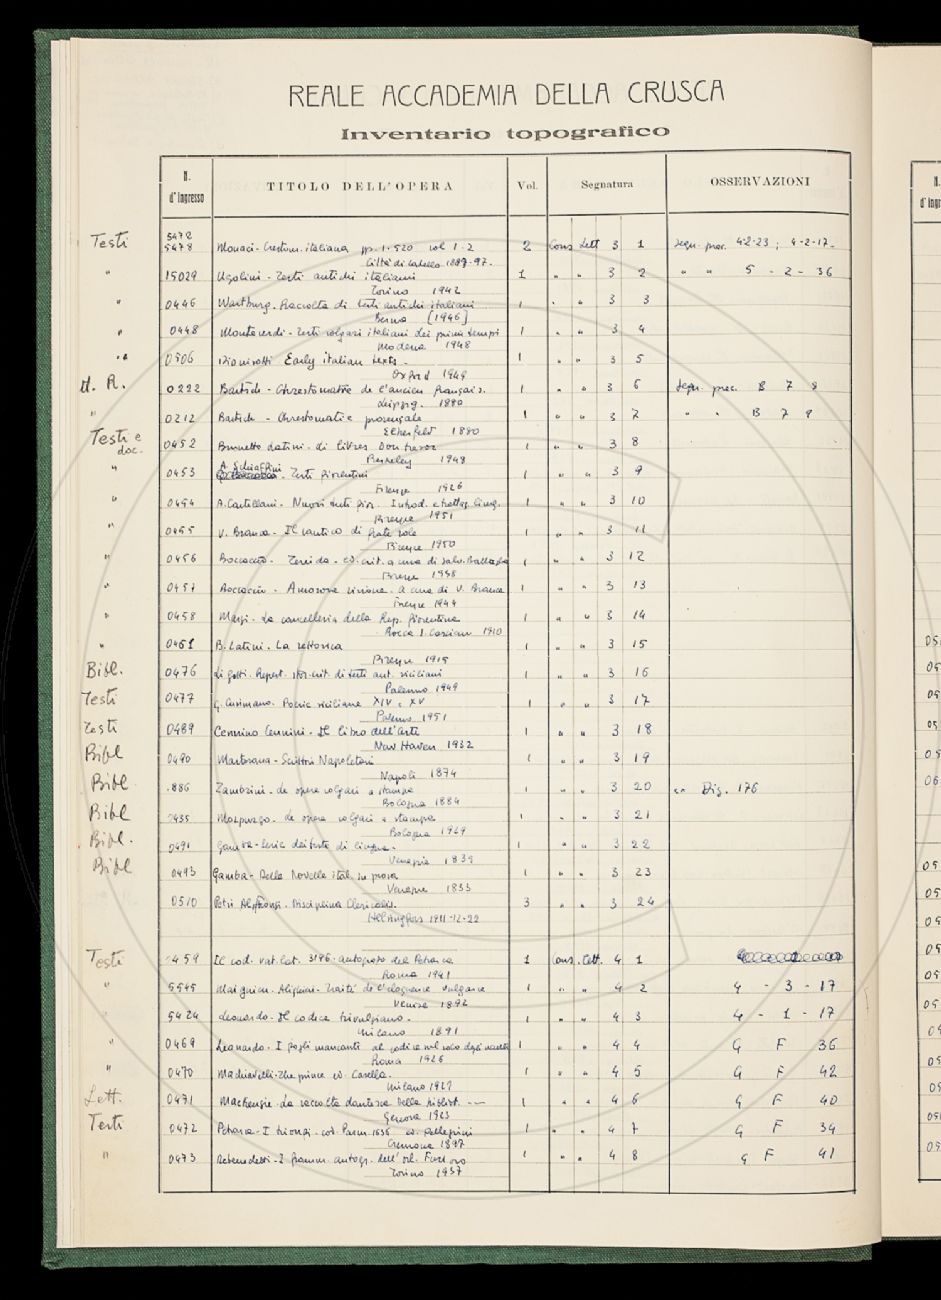 REALE ACCADEMIA DELLA CRUSCA
Inventario topografico
N. d'Ingresso TITOLO DELL'OPERA Vol. Segnatura OSSERVAZIONI
5472
Testi 5478 Monaci - Crestom. italiana pp. 1-520 vol 1-2 2 Cons. Lett 3 1 Segn. prec. 4-2-23 ; 4-2-17.
Città di Castello 1889-97.
" 15029 Ugolini - Testi antichi italiani 1 " " 3 2 " " 5 - 2 - 36
Torino 1942
" 0446 Wartburg. Raccolta di testi antichi italiani 1 " " 3 3
Berna [1946]
" 0448 Monteverdi - Testi volgari italiani dei primi tempi 1 " " 3 4
Modena 1948
" 0506 Dionisotti Early italian texts. 1 " " 3 5
Oxford 1949
d. R. 0222 Bartsch - Chrestomathie de l'ancien français. 1 " " 3 6 Segn. prec. B 7 8
Leipzig. 1880
" 0212 Bartsch - Chrestomatie provençale 1 " " 3 7 " " B 7 9
Elberfeld 1880
Testi e doc. 0452 Brunetto Latini - Li livres dou tresor 1 " " 3 8
Berkeley 1948
A. Schiaffini
" 0453 Testi fiorentini 1 " " 3 9
Firenze 1926
" 0454 A. Castellani - Nuovi testi fior. Introd. e trattaz. ling. 1 " " 3 10
Firenze 1951
" 0455 V. Branca - Il cantico di frate sole 1 " " 3 11
Firenze 1950
" 0456 Boccaccio - Teseida - ed. crit. a cura di Salv. Battaglia 1 " " 3 12
Firenze 1938
" 0457 Boccaccio - Amorosa visione. a cura di V. Branca 1 " " 3 13
Firenze 1944
" 0458 Marzi - La cancelleria della Rep. fiorentina 1 " " 3 14
Rocca S. Casciano 1910
" 0461 B. Latini. La rettorica 1 " " 3 15
Firenze 1915
Bibl. 0476 Li Gotti. Repert. stor. crit. di testi ant. siciliani 1 " " 3 16
Palermo 1949
Testi 0477 G. Cusimano. Poesie siciliane XIV e XV 1 " " 3 17
Palermo 1951
Testi 0489 Cennino Cennini - Il libro dell'arte 1 " " 3 18
New Haven 1932
Bibl 0490 Martorana - Scrittori Napoletani 1 " " 3 19
Napoli 1874
Bibl. 886 Zambrini - Le opere volgari a stampa 1 " " 3 20 Diz. 176
Bologna 1884
Bibl 2435 Morpurgo. Le opere volgari a stampa 1 " " 3 21
Bologna 1929
Bibl. 0491 Gamba - Serie dei testi di lingua. 1 " " 3 22
Venezia 1839
Bibl 0493 Gamba - Delle Novelle ital. in prosa 1 " " 3 23
Venezia 1835
0510 Petri Alphonsi. Disciplina Clericalis. 3 " " 3 24
Helsingfors 1911-12-22
Testi 0459 Il cod. Vat. Lat. 3196 autografo del Petrarca 1 Cons. Lett. 4 1
Roma 1941
" 5545 Maignien. Alighieri - Traité de l'éloquence vulgaire 1 " " 4 2 4 - 3 - 17
Venise 1892
" 5424 Leonardo - Il codice trivulziano. 1 " " 4 3 4 - 1 - 17
Milano 1891
" 0469 Leonardo - I fogli mancanti al codice sul volo degli uccelli 1 " " 4 4 G F 36
Roma 1926
" 0470 Machiavelli - The prince ed. Casella. 1 " " 4 5 G F 42
Milano 1929
Lett. 0471 Mackenzie - La raccolta dantesca della bibliot. --- 1 " " 4 6 G F 40
Genova 1923
Testi 0472 Petrarca - I trionfi - cod. Parm. 1636 ed. Pellegrini 1 " " 4 7 G F 34
Cremona 1897
" 0473 Debenedetti - I framm. autogr. dell'Orl. Furioso 1 " " 4 8 G F 41
Torino 1937